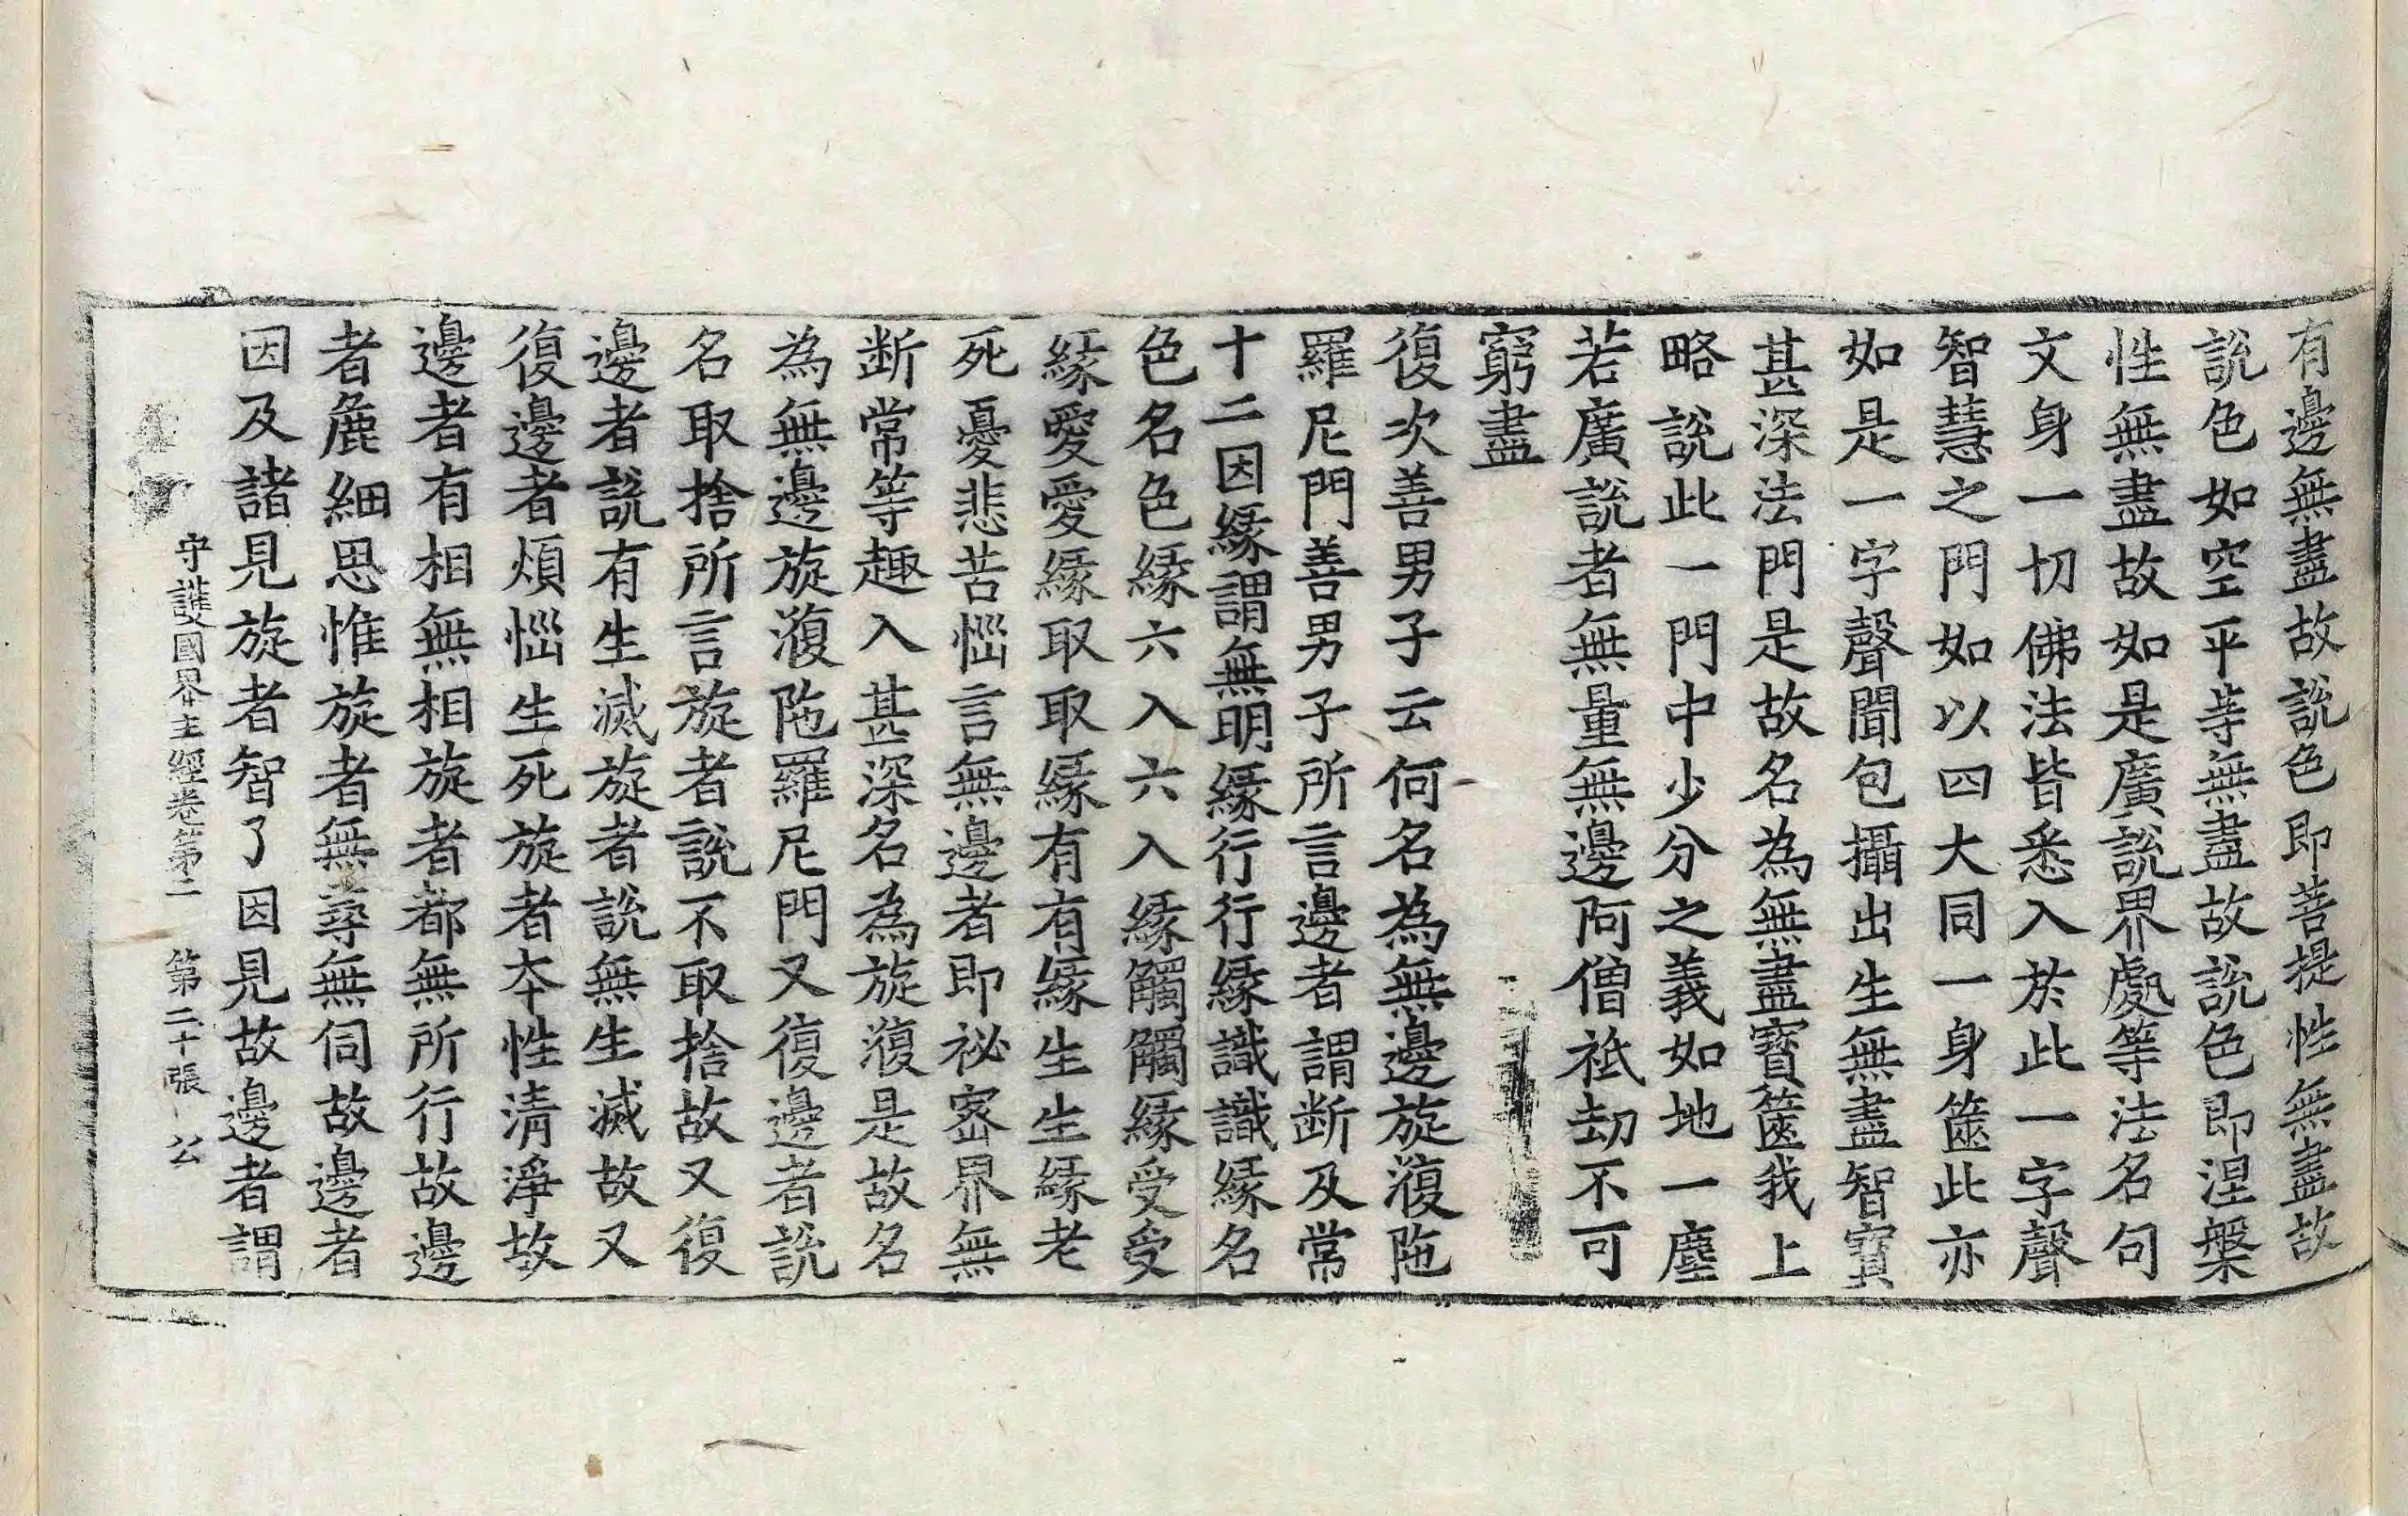 有邊無盡故說色即菩提性無盡故
說色如空平等無盡故說色即涅槃
性無盡故如是廣說界處等法名句
文身一切佛法皆悉入於此一字聲
智慧之門如以四大同一身篋此亦
如是一字聲聞包攝出生無盡智寶
甚深法門是故名為無盡寶篋我上
略說此一門中少分之義如地一塵
若廣說者無量無邊阿僧祇劫不可
窮盡
復次善男子云何名為無邊旋澓陁
羅尼門善男子所言邊者謂断及常
十二因緣謂無明緣行行緣識識緣名
色名色緣六入六入緣觸觸緣受受
緣愛愛緣取取緣有有緣生生緣老
死憂悲苦惱言無邊者即祕密界無
断常等趣入甚深名為旋澓是故名
為無邊旋澓陁羅尼門又復邊者說
名取捨所言旋者說不取捨故又復
邊者說有生滅旋者說無生滅故又
復邊者煩惱生死旋者本性清淨故
邊者有相無相旋者都無所行故邊
者麁細思惟旋者無尋無伺故邊者
因及諸見旋者智了因見故邊者謂
守護國界主經卷第二 第二十張 公